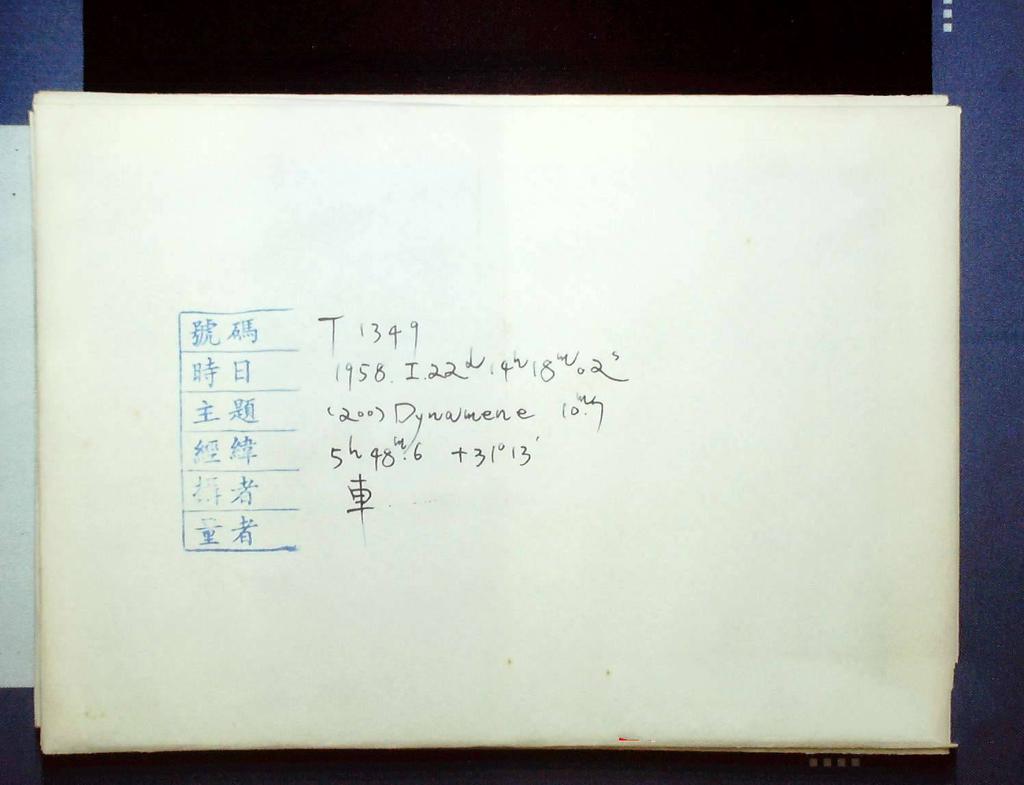 號碼 T 1349
時日 1958. I. 22ᵈ 14ʰ 18ᵐ 02ˢ
主題 (200) Dynamene 10ᵐ.7
經緯 5ʰ 48ᵐ.6 +31° 13′
攝者 車
量者